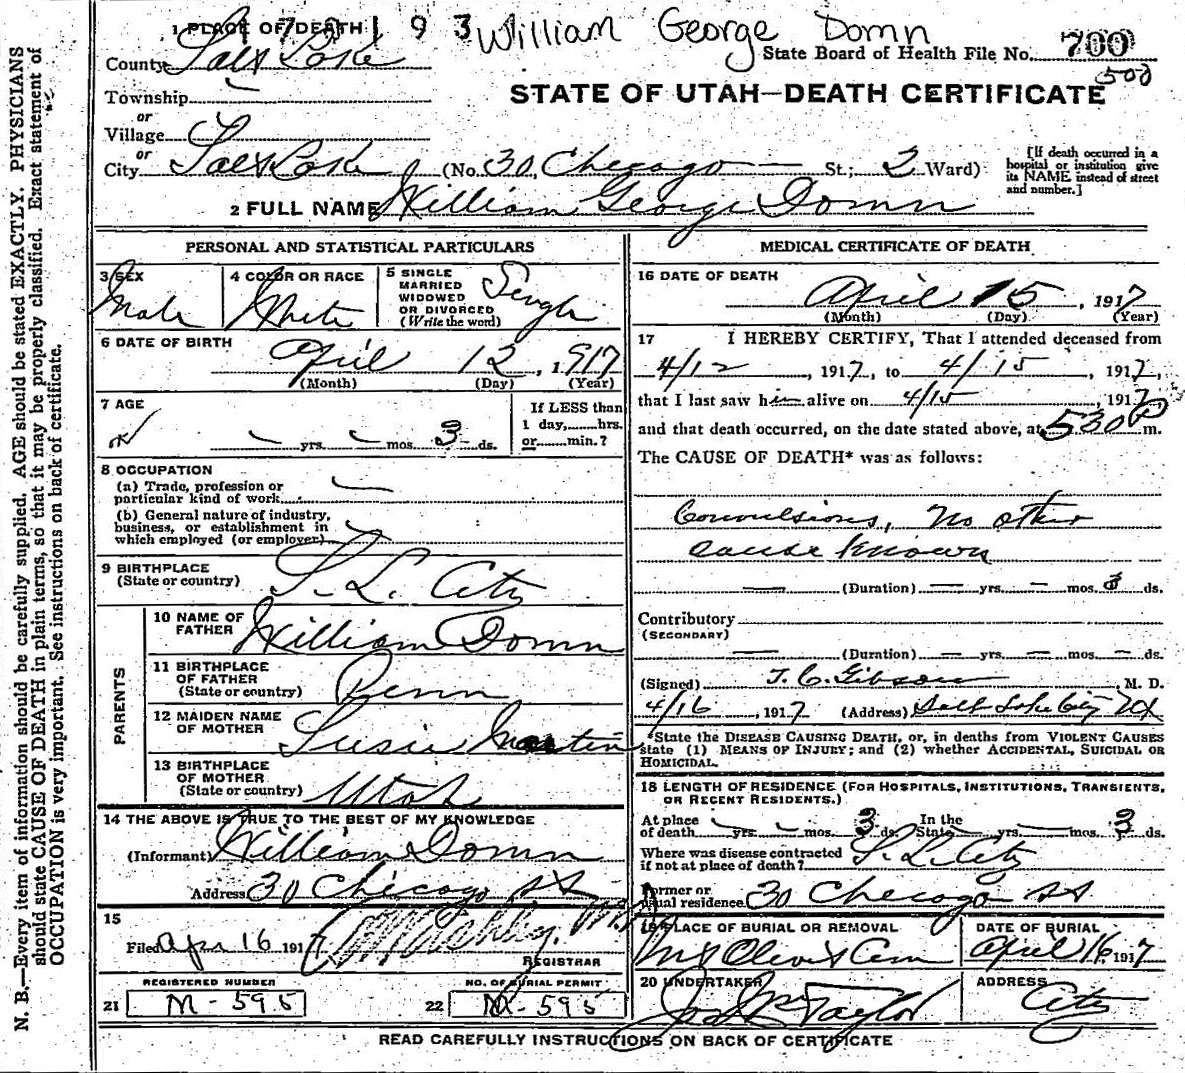 1 PLACE OF DEATH 193 William George Domn
State Board of Health File No. 700
500
County Salt Lake
STATE OF UTAH—DEATH CERTIFICATE
Township
or
Village
or
City Salt Lake (No. 30, Chicago St.; 2 Ward)
[If death occurred in a hospital or institution give its NAME instead of street and number.]
2 FULL NAME William George Domn
PERSONAL AND STATISTICAL PARTICULARS
3 SEX Male
4 COLOR OR RACE White
5 SINGLE MARRIED WIDOWED OR DIVORCED (Write the word) Single
6 DATE OF BIRTH April 12, 1917
(Month) (Day) (Year)
7 AGE
yrs. mos. 3 ds.
If LESS than 1 day, hrs. or min.?
8 OCCUPATION
(a) Trade, profession or particular kind of work
(b) General nature of industry, business, or establishment in which employed (or employer)
9 BIRTHPLACE (State or country) S. L. City
PARENTS
10 NAME OF FATHER William Domn
11 BIRTHPLACE OF FATHER (State or country) Penn
12 MAIDEN NAME OF MOTHER Susie Martin
13 BIRTHPLACE OF MOTHER (State or country) Utah
14 THE ABOVE IS TRUE TO THE BEST OF MY KNOWLEDGE
(Informant) William Domn
Address 30 Chicago St
15
Filed Apr 16 1917
REGISTRAR
REGISTERED NUMBER
21 M-595
NO. OF BURIAL PERMIT
22 M-595
MEDICAL CERTIFICATE OF DEATH
16 DATE OF DEATH
April 15, 1917
(Month) (Day) (Year)
17 I HEREBY CERTIFY, That I attended deceased from
4/12, 1917, to 4/15 1917,
that I last saw him alive on 4/15, 1917
and that death occurred, on the date stated above, at 530 P m.
The CAUSE OF DEATH* was as follows:
Convulsions, No other
cause known
(Duration) yrs. mos. 3 ds.
Contributory
(SECONDARY)
(Duration) yrs. mos. ds.
(Signed) T. C. Gibson, M. D.
4/16, 1917 (Address) Salt Lake City Ut
*State the DISEASE CAUSING DEATH, or, in deaths from VIOLENT CAUSES
state (1) MEANS OF INJURY; and (2) whether ACCIDENTAL, SUICIDAL OR
HOMICIDAL.
18 LENGTH OF RESIDENCE (FOR HOSPITALS, INSTITUTIONS, TRANSIENTS,
OR RECENT RESIDENTS.)
At place of death yrs. mos. 3 ds. In the State yrs. mos. 3 ds.
Where was disease contracted if not at place of death? S. L. City
Former or usual residence 30 Chicago St
19 PLACE OF BURIAL OR REMOVAL
Mt Olivet Cem
DATE OF BURIAL
April 16, 1917
20 UNDERTAKER
Taylor
ADDRESS
City
READ CAREFULLY INSTRUCTIONS ON BACK OF CERTIFICATE
N. B.—Every item of information should be carefully supplied. AGE should be stated EXACTLY. PHYSICIANS
should state CAUSE OF DEATH in plain terms, so that it may be properly classified. Exact statement of
OCCUPATION is very important. See instructions on back of certificate.